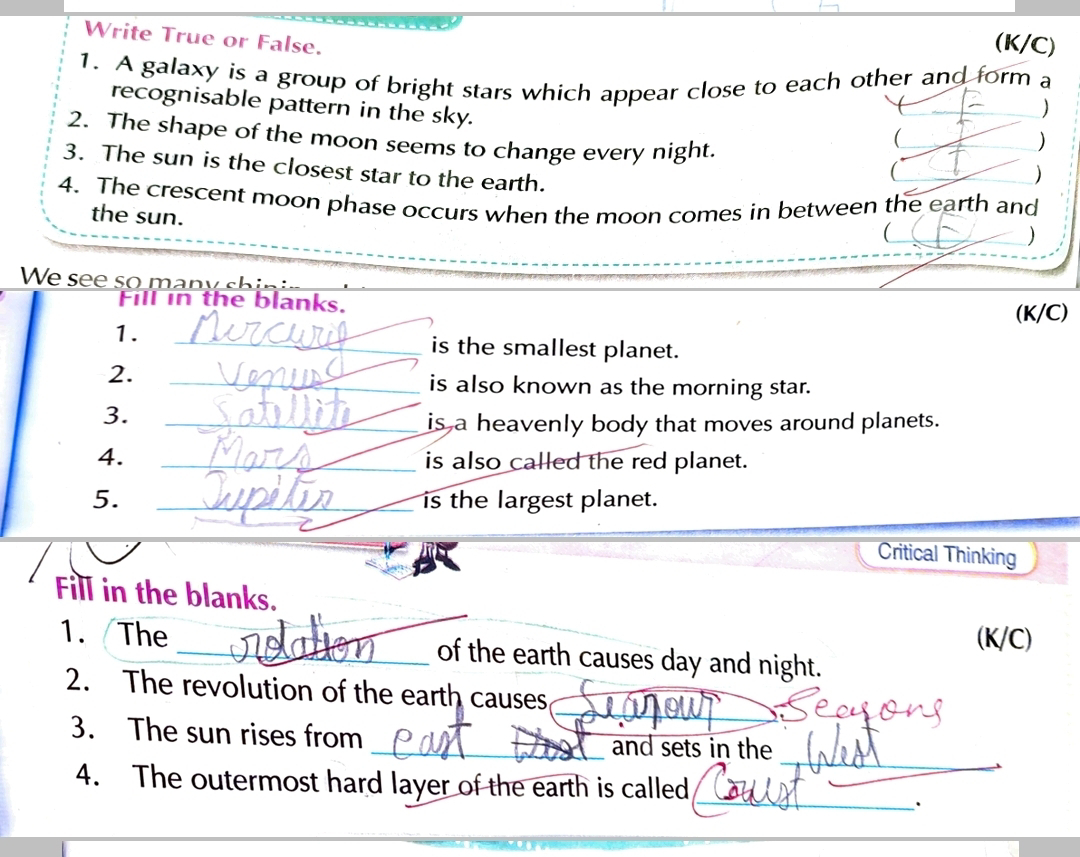 Write True or False.
(K/C)
1. A galaxy is a group of bright stars which appear close to each other and form a
recognisable pattern in the sky. ( F )
2. The shape of the moon seems to change every night. ( T )
3. The sun is the closest star to the earth. ( T )
4. The crescent moon phase occurs when the moon comes in between the earth and
the sun. ( F )
We see so many shinin
Fill in the blanks.
(K/C)
1. Mercury is the smallest planet.
2. Venus is also known as the morning star.
3. Satellite is a heavenly body that moves around planets.
4. Mars is also called the red planet.
5. Jupiter is the largest planet.
Critical Thinking
Fill in the blanks.
(K/C)
1. The rotation of the earth causes day and night.
2. The revolution of the earth causes Seasons
3. The sun rises from east and sets in the West
4. The outermost hard layer of the earth is called Crust.